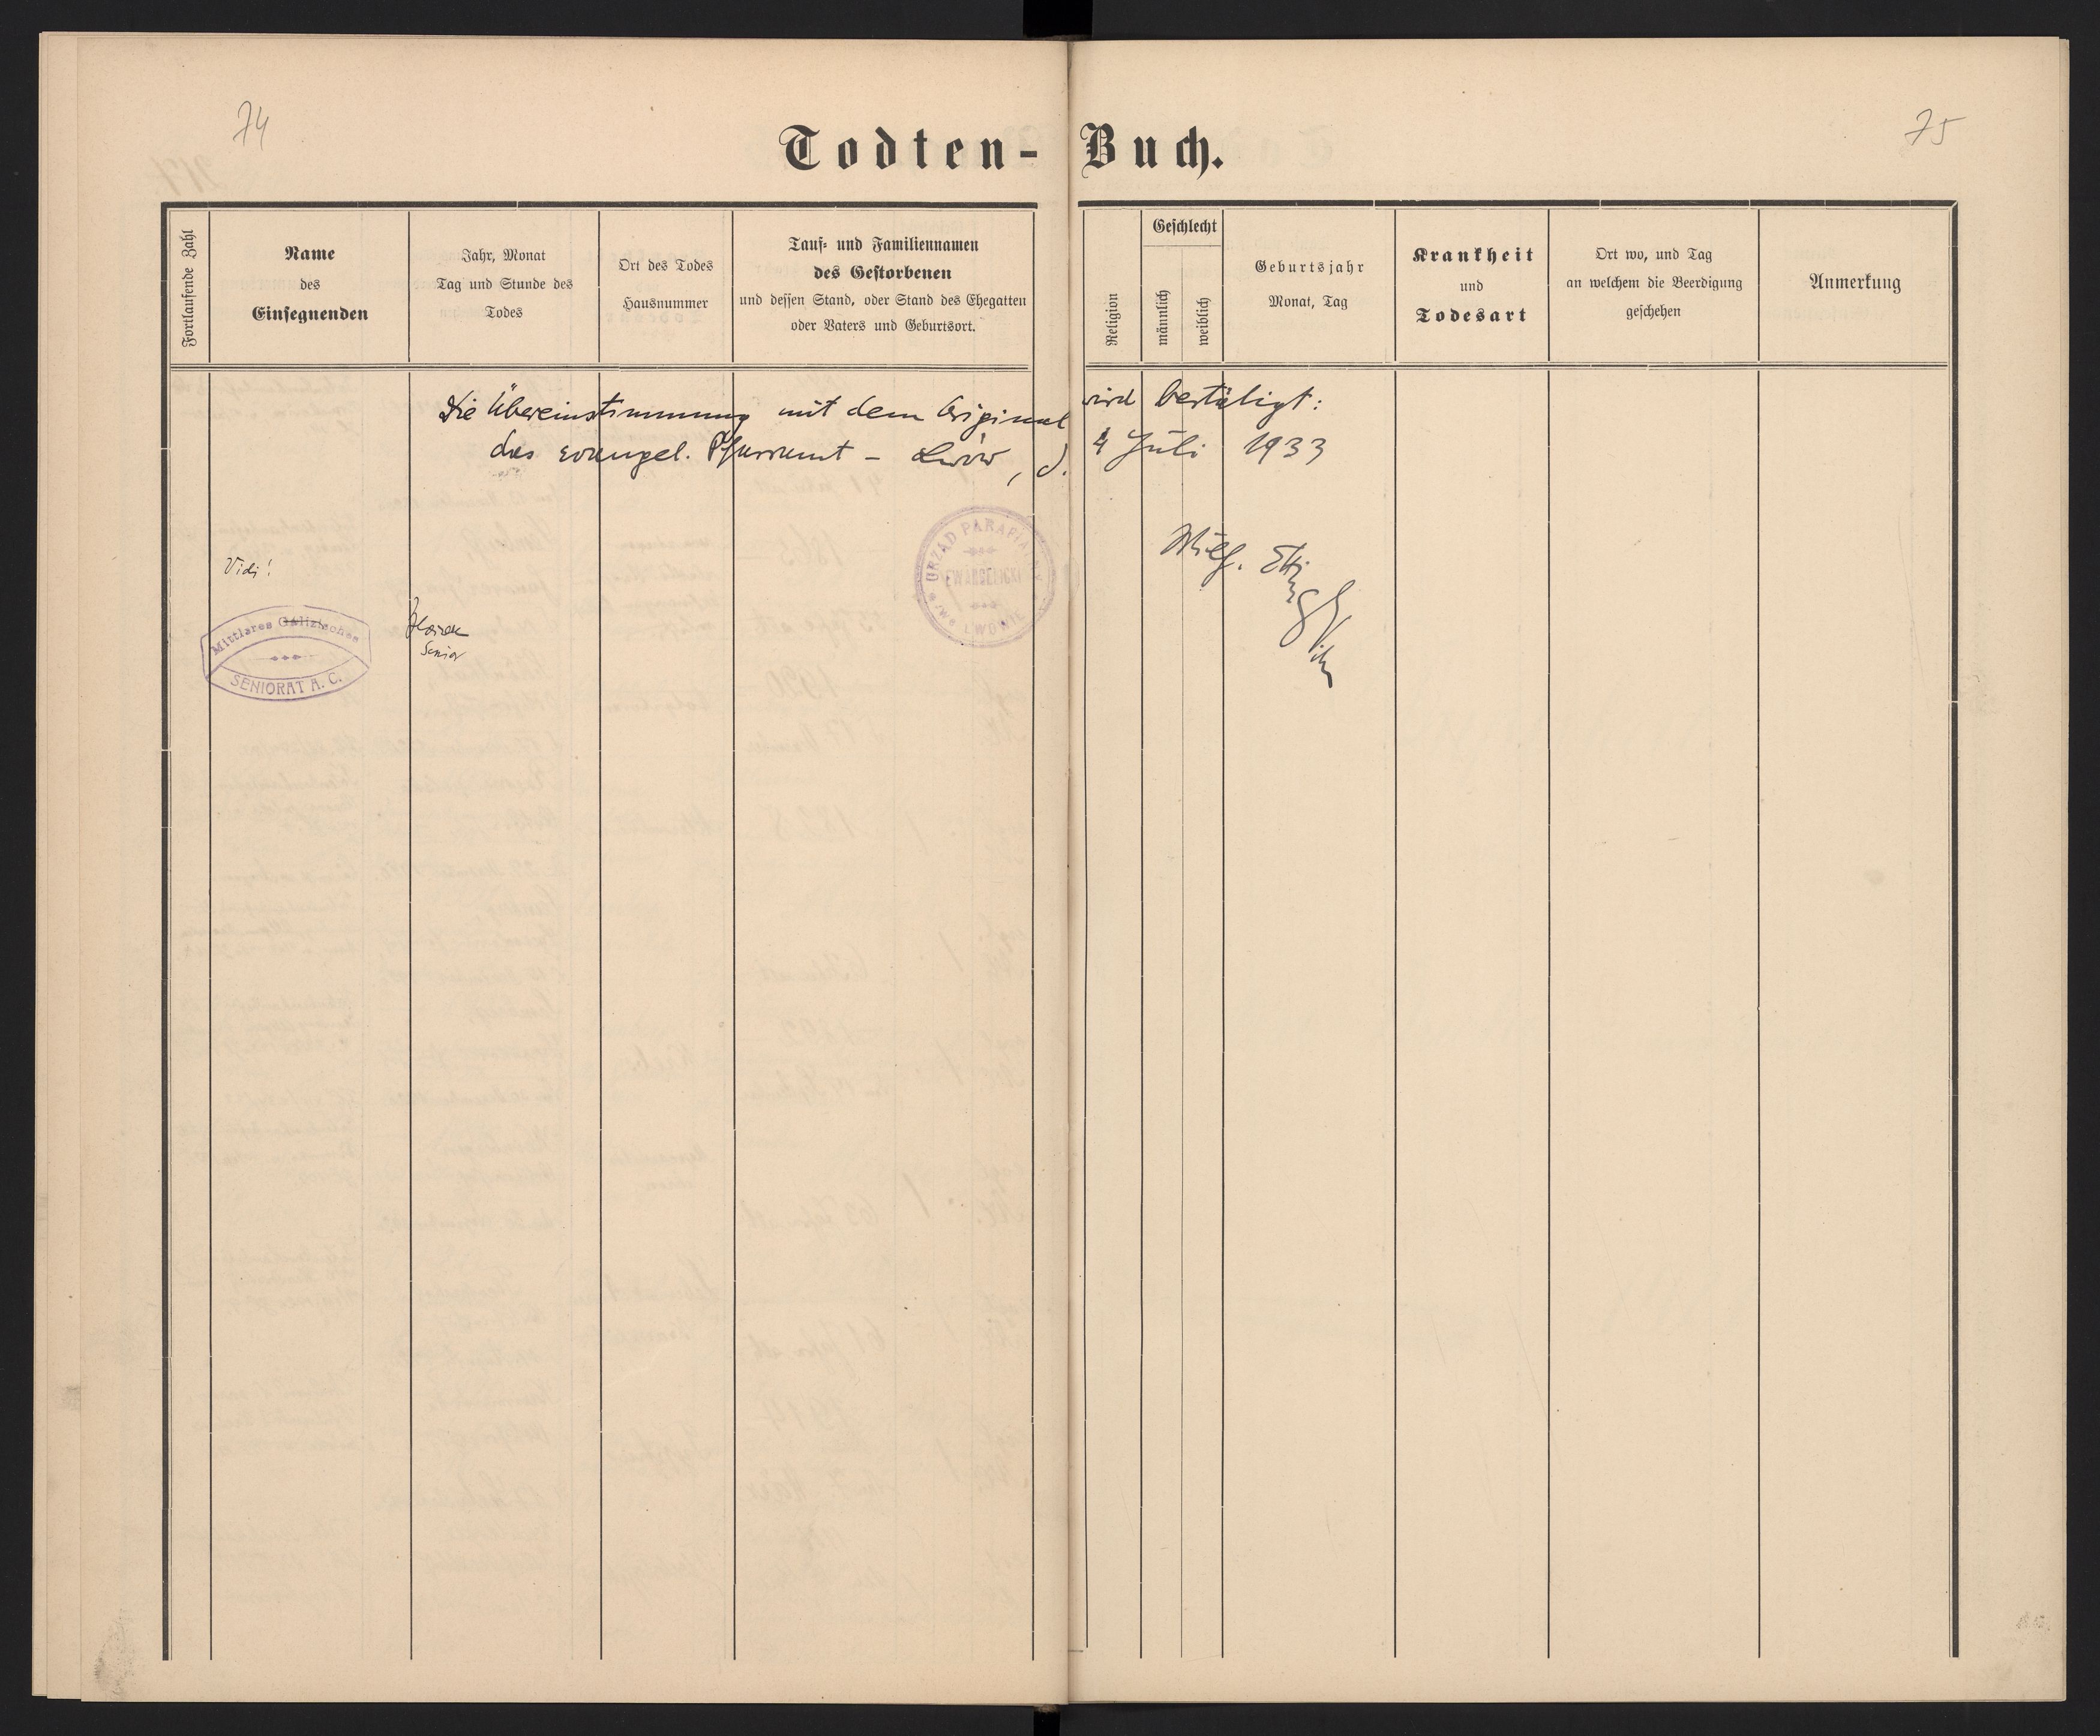 74
75
Todten- Buch.
Fortlaufende Zahl
Name
des
Einsegnenden
Jahr, Monat
Tag und Stunde des
Todes
Ort des Todes
Hausnummer
Tauf- und Familiennamen
des Gestorbenen
und dessen Stand, oder Stand des Ehegatten
oder Vaters und Geburtsort.
Religion
Geschlecht
männlich
weiblich
Geburtsjahr
Monat, Tag
Krankheit
und
Todesart
Ort wo, und Tag
an welchem die Beerdigung
geschehen
Anmerkung
Die Übereinstimmung mit dem Original wird bestätigt:
das evangel. Pfarramt - Lwów, d. 4 Juli 1933
URZĄD PARAFIALNY
EWANGELICKI
WE LWOWIE
Vidi!
Mittlares Galizisches
SENIORAT A. C.
Senior